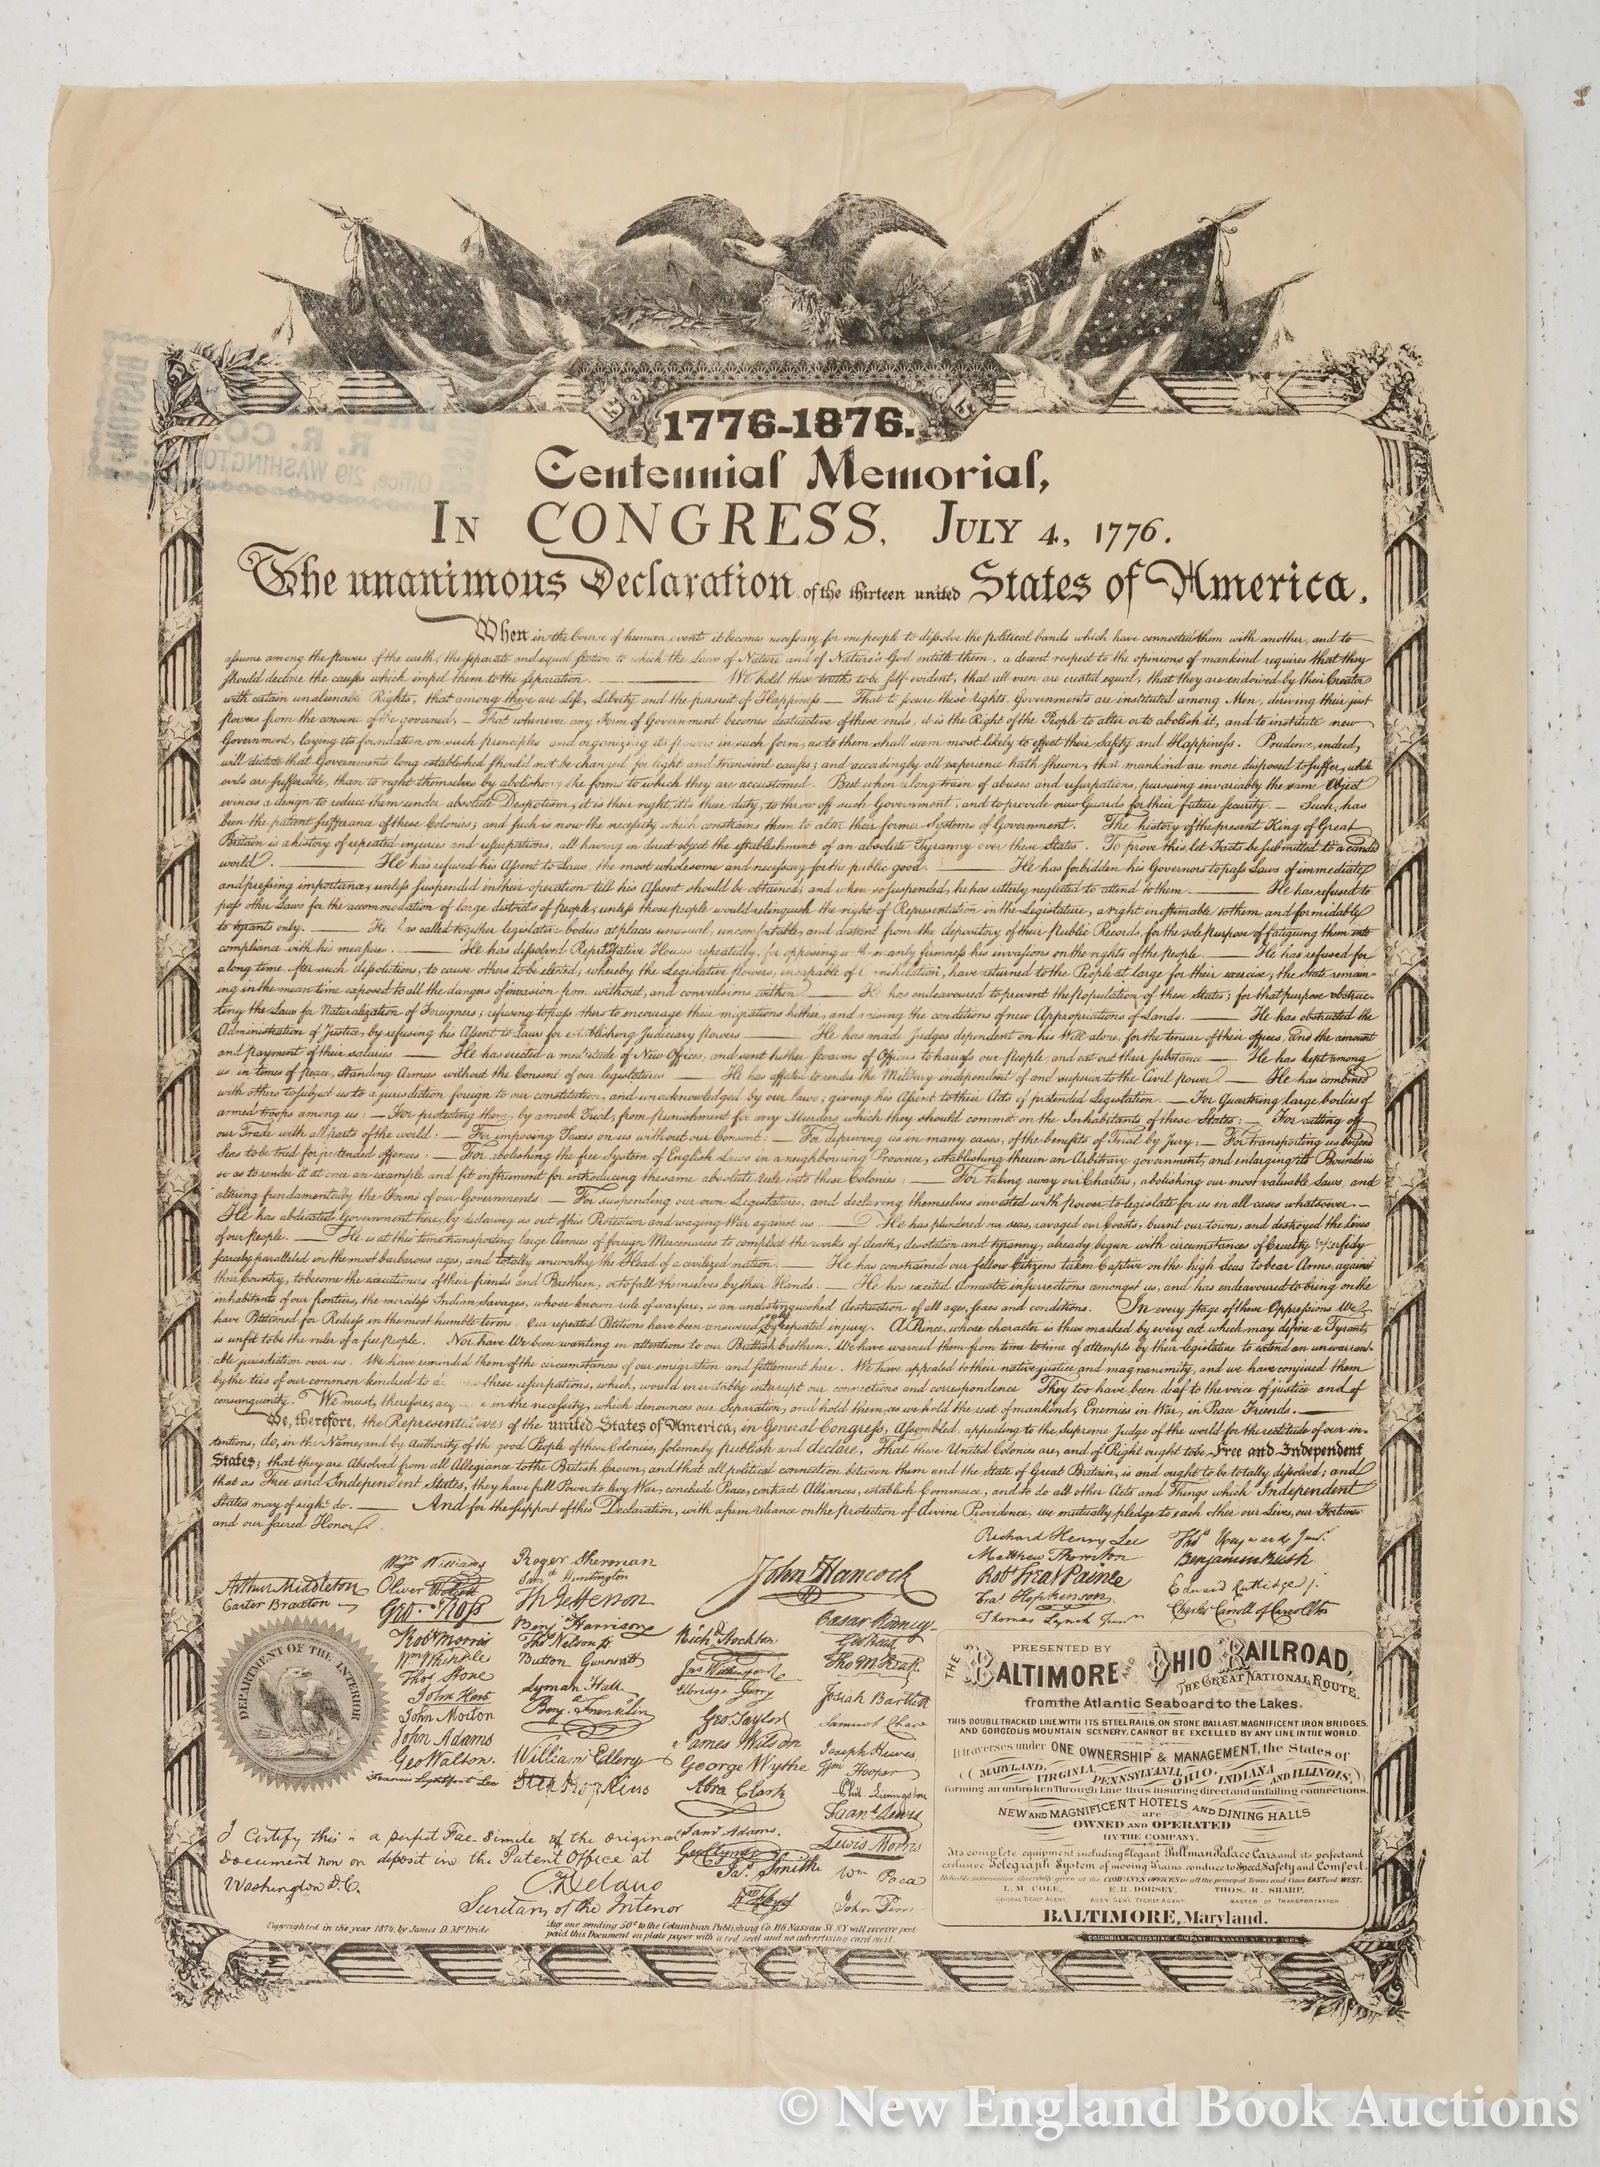 1776-1876.
Centennial Memorial,
In CONGRESS, July 4, 1776.
The unanimous Declaration of the thirteen united States of America,
When in the Course of human events it becomes necessary for one people to dissolve the political bands which have connected them with another, and to
assume among the powers of the earth, the separate and equal station to which the Laws of Nature and of Nature's God entitle them, a decent respect to the opinions of mankind requires that they
should declare the causes which impel them to the separation. — We hold these truths to be self-evident, that all men are created equal, that they are endowed by their Creator
with certain unalienable Rights, that among these are Life, Liberty and the pursuit of Happiness — That to secure these rights, Governments are instituted among Men, deriving their just
powers from the consent of the governed, — That whenever any Form of Government becomes destructive of these ends, it is the Right of the People to alter or to abolish it, and to institute new
Government, laying its foundation on such principles and organizing its powers in such form, as to them shall seem most likely to effect their Safety and Happiness. Prudence, indeed,
will dictate that Governments long established should not be changed for light and transient causes; and accordingly all experience hath shewn, that mankind are more disposed to suffer, while
evils are sufferable, than to right themselves by abolishing the forms to which they are accustomed. But when a long train of abuses and usurpations, pursuing invariably the same Object
evinces a design to reduce them under absolute Despotism, it is their right, it is their duty, to throw off such Government, and to provide new Guards for their future security. — Such has
been the patient sufferance of these Colonies; and such is now the necessity which constrains them to alter their former Systems of Government. The history of the present King of Great
Britain is a history of repeated injuries and usurpations, all having in direct object the establishment of an absolute Tyranny over these States. To prove this, let Facts be submitted to a candid
world. — He has refused his Assent to Laws, the most wholesome and necessary for the public good. — He has forbidden his Governors to pass Laws of immediate
and pressing importance, unless suspended in their operation till his Assent should be obtained; and when so suspended, he has utterly neglected to attend to them. — He has refused to
pass other Laws for the accommodation of large districts of people, unless those people would relinquish the right of Representation in the Legislature, a right inestimable to them and formidable
to tyrants only. — He has called together legislative bodies at places unusual, uncomfortable, and distant from the depository of their Public Records, for the sole purpose of fatiguing them into
compliance with his measures. — He has dissolved Representative Houses repeatedly, for opposing with manly firmness his invasions on the rights of the people. — He has refused for
a long time, after such dissolutions, to cause others to be elected; whereby the Legislative powers, incapable of Annihilation, have returned to the People at large for their exercise; the State remain-
ing in the mean time exposed to all the dangers of invasion from without, and convulsions within. — He has endeavoured to prevent the population of these States; for that purpose obstruc-
ting the Laws for Naturalization of Foreigners; refusing to pass others to encourage their migrations hither, and raising the conditions of new Appropriations of Lands. — He has obstructed the
Administration of Justice, by refusing his Assent to Laws for establishing Judiciary Powers — He has made Judges dependent on his Will alone, for the tenure of their offices, and the amount
and payment of their salaries — He has erected a multitude of New Offices, and sent hither swarms of Officers to harass our People, and eat out their substance — He has kept among
us in times of peace, Standing Armies without the Consent of our legislatures — He has affected to render the Military independent of and superior to the Civil power — He has combined
with others to subject us to a jurisdiction foreign to our constitution, and unacknowledged by our laws; giving his Assent to their Acts of pretended Legislation. — For Quartering large bodies of
armed troops among us: — For protecting them, by a mock Trial, from punishment for any Murders which they should commit on the Inhabitants of these States: — For cutting off
our Trade with all parts of the world: — For imposing Taxes on us without our Consent: — For depriving us in many cases, of the benefits of Trial by Jury; — For transporting us beyond
Seas to be tried for pretended offences: — For abolishing the free System of English Laws in a neighbouring Province, establishing therein an Arbitrary government, and enlarging its Boundaries
so as to render it at once an example and fit instrument for introducing the same absolute rule into these Colonies: — For taking away our Charters, abolishing our most valuable Laws, and
altering fundamentally the Forms of our Governments: — For suspending our own Legislatures, and declaring themselves invested with power to legislate for us in all cases whatsoever. —
He has abdicated Government here, by declaring us out of his Protection and waging War against us. — He has plundered our seas, ravaged our Coasts, burnt our towns, and destroyed the lives
of our people. — He is at this time transporting large Armies of foreign Mercenaries to compleat the works of death, desolation and tyranny, already begun with circumstances of Cruelty & perfidy
scarcely paralleled in the most barbarous ages, and totally unworthy the Head of a civilized nation. — He has constrained our fellow Citizens taken Captive on the high Seas to bear Arms against
their Country, to become the executioners of their friends and Brethren, or to fall themselves by their Hands. — He has excited domestic insurrections amongst us, and has endeavoured to bring on the
inhabitants of our frontiers, the merciless Indian Savages, whose known rule of warfare, is an undistinguished destruction of all ages, sexes and conditions. In every stage of these Oppressions We
have Petitioned for Redress in the most humble terms: Our repeated Petitions have been answered only by repeated injury. A Prince, whose character is thus marked by every act which may define a Tyrant,
is unfit to be the ruler of a free people. Nor have We been wanting in attentions to our Brittish brethren. We have warned them from time to time of attempts by their legislature to extend an unwarrant-
able jurisdiction over us. We have reminded them of the circumstances of our emigration and settlement here. We have appealed to their native justice and magnanimity, and we have conjured them
by the ties of our common kindred to these usurpations, which, would inevitably interrupt our connections and correspondence They too have been deaf to the voice of justice and of
consanguinity. We must, therefore, in the necessity, which denounces our Separation, and hold them, as we hold the rest of mankind, Enemies in War, in Peace Friends. —
We, therefore, the Representatives of the united States of America, in General Congress, Assembled, appealing to the Supreme Judge of the world for the rectitude of our in-
tentions, do, in the Name, and by Authority of the good People of these Colonies, solemnly publish and declare, That these United Colonies are, and of Right ought to be Free and Independent
States; that they are Absolved from all Allegiance to the British Crown, and that all political connection between them and the State of Great Britain, is and ought to be totally dissolved; and
that as Free and Independent States, they have full Power to levy War, conclude Peace, contract Alliances, establish Commerce, and to do all other Acts and Things which Independent
States may of right do. — And for the support of this Declaration, with a firm reliance on the Protection of divine Providence, we mutually pledge to each other our Lives, our Fortunes
and our Sacred Honor.
Arthur Middleton
Carter Braxton
Wm Williams
Oliver Wolcott
Geo. Ross
Robt Morris
Wm Whipple
Thos Stone
John Hart
John Morton
John Adams
Geo Walton.
Francis Lightfoot Lee
Roger Sherman
Sam'd Huntington
Th Jefferson
Benj Harrison
Thos Nelson jr
Button Gwinnett
Lyman Hall
Benj. Franklin
William Ellery
Step Hopkins
John Hancock
Richd Stockton
Jno Witherspoon
Elbridge Gerry
Geo. Taylor
James Wilson
George Wythe
Abra Clark
Saml Adams.
Geo Clymer
Jas. Smith
Caesar Rodney
Geo Read
Tho M:Kean
Josiah Bartlett
Samuel Chase
Joseph Hewes,
Wm Hooper
Phil. Livingston
Frans. Lewis
Lewis Morris
Wm Paca
John Penn
Richard Henry Lee
Matthew Thornton
Robt Treat Paine
Fras. Hopkinson
Thomas Lynch Junr
Thos Heyward Junr.
Benjamin Rush
Edward Rutledge j.
Charles Carroll of Carrollton
DEPARTMENT OF THE INTERIOR
I Certify this is a perfect Fac Simile of the original
Document now on deposit in the Patent Office at
Washington D.C.
C Delano
Secretary of the Interior
PRESENTED BY
THE BALTIMORE AND OHIO RAILROAD,
The Great National Route,
from the Atlantic Seaboard to the Lakes.
THIS DOUBLE-TRACKED LINE, WITH ITS STEEL RAILS, ON STONE BALLAST, MAGNIFICENT IRON BRIDGES,
AND GORGEOUS MOUNTAIN SCENERY, CANNOT BE EXCELLED BY ANY LINE IN THE WORLD.
It traverses under ONE OWNERSHIP & MANAGEMENT, the States of
MARYLAND, VIRGINIA, PENNSYLVANIA, OHIO, INDIANA AND ILLINOIS,
forming an unbroken Through Line thus insuring direct and unfailing connections.
NEW AND MAGNIFICENT HOTELS AND DINING HALLS
are
OWNED AND OPERATED
BY THE COMPANY.
Its complete equipment including Elegant Pullman Palace Cars, and its perfect and
exclusive Telegraph System of moving Trains conduce to Speed, Safety and Comfort.
Reliable information cheerfully given at the COMPANY'S OFFICES in all the principal Towns and Cities EAST and WEST.
L. M. COLE, E. R. DORSEY, THOS. R. SHARP,
GENERAL TICKET AGENT. ASST GENL TICKET AGENT. MASTER OF TRANSPORTATION.
BALTIMORE, Maryland.
COLUMBIAN PUBLISHING COMPANY 116 NASSAU ST. NEW YORK
Copyrighted in the year 1874, by James D. McBride
Any one sending 50c to the Columbian Publishing Co. 116 Nassau St. N.Y. will receive post-
paid this Document on plate paper with a red seal and no advertising card on it.
R. R. CO.
Office, 219 WASHINGTON
BOSTON
© New England Book Auctions